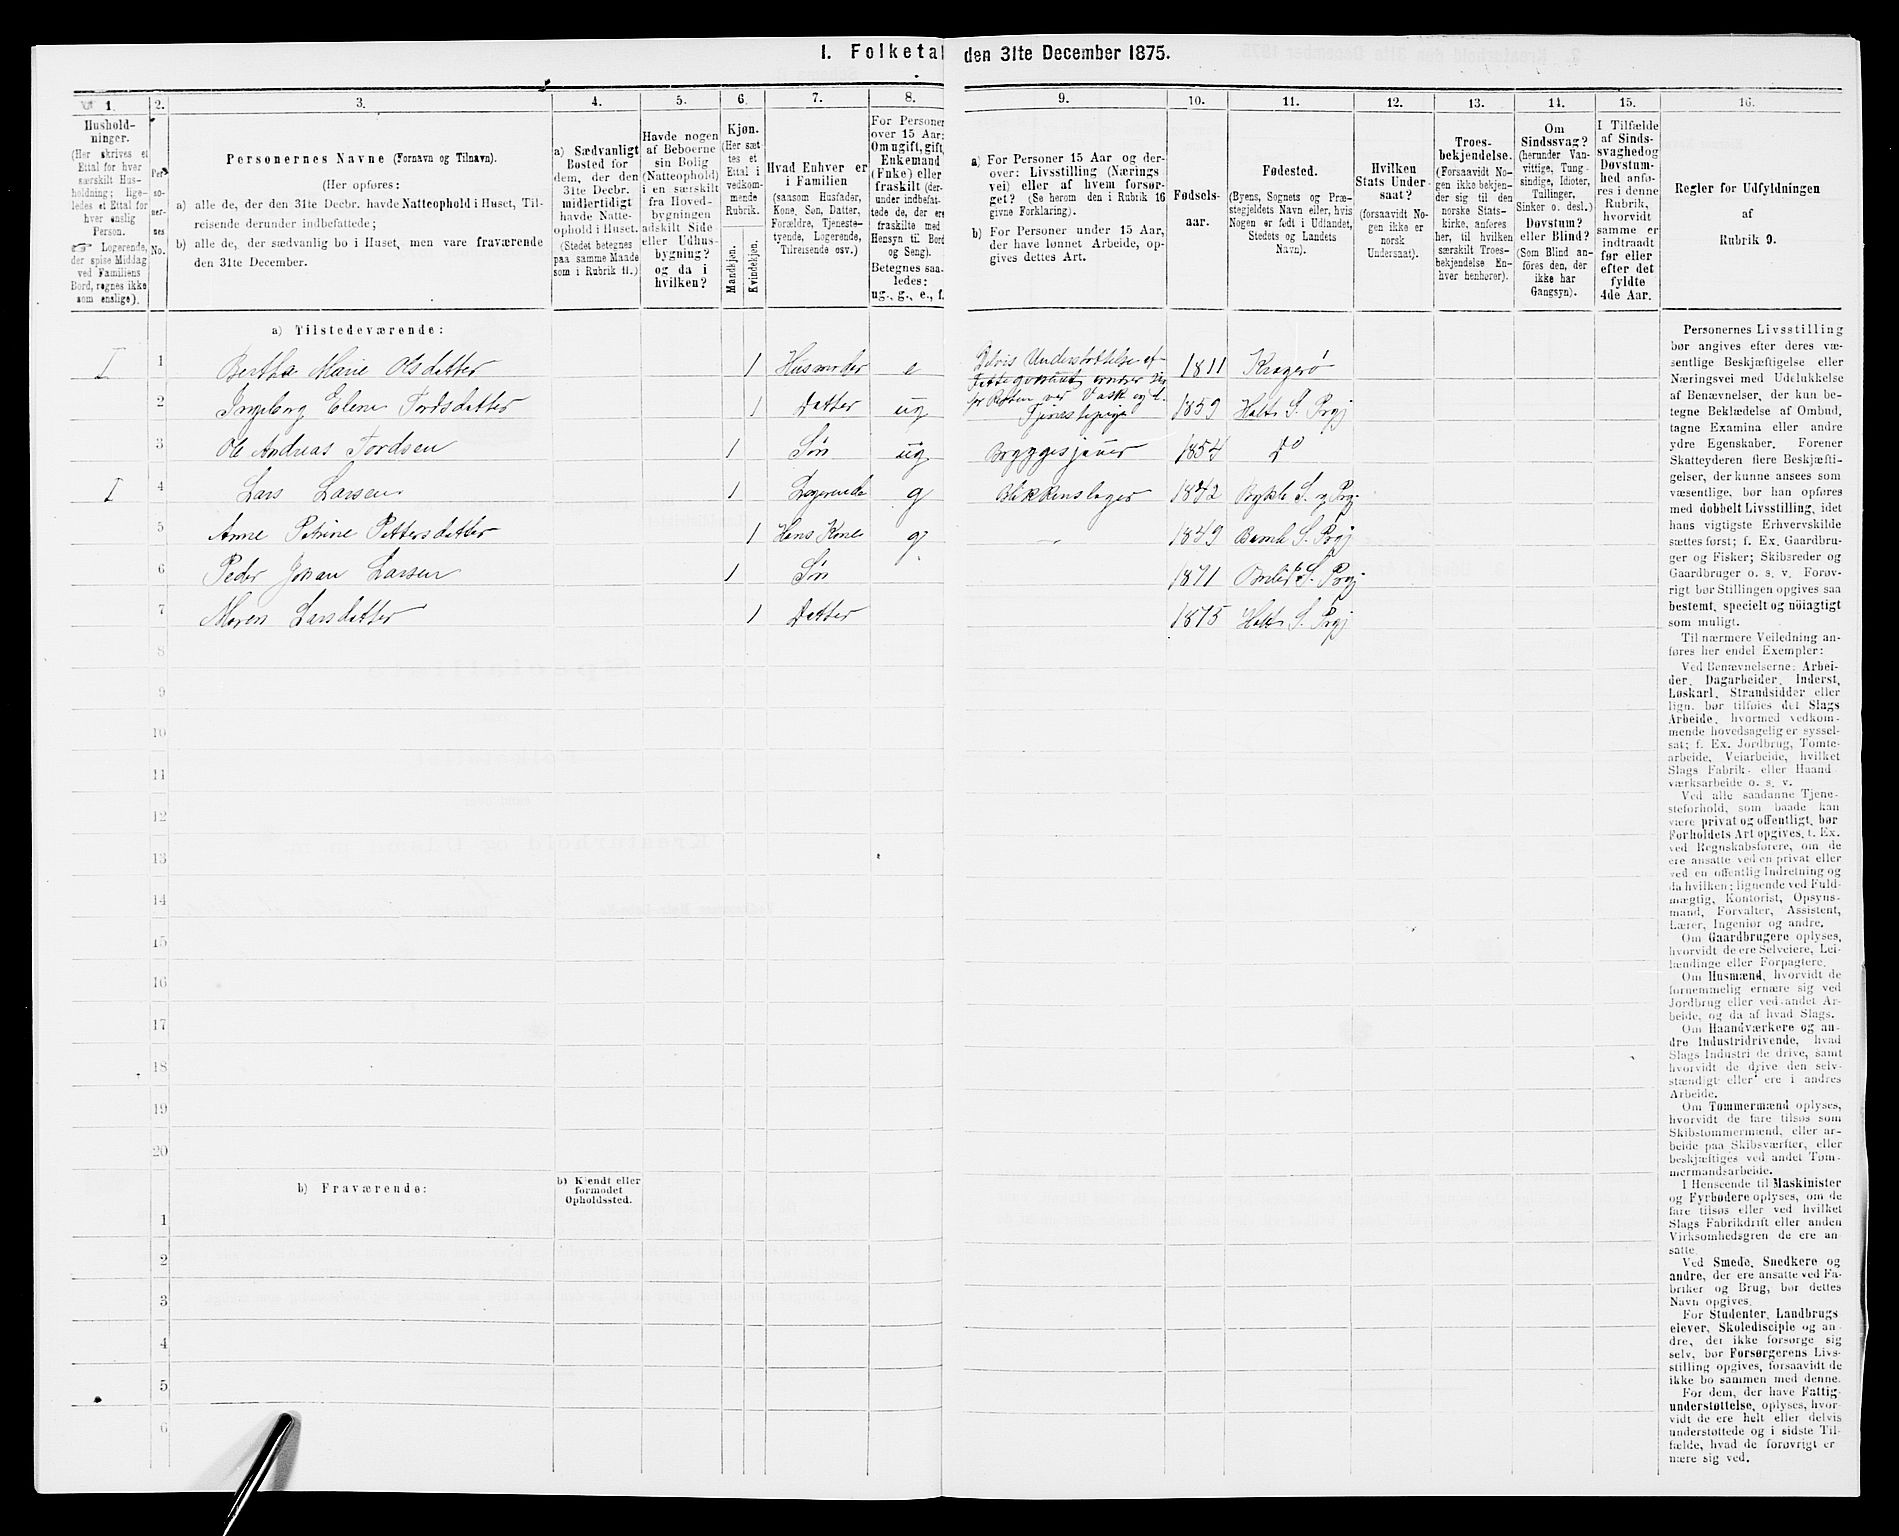 I. Folketal den 31te December 1875.
1. 2. 3. 4. 5. 6. 7. 8. 9. 10. 11. 12. 13. 14. 15. 16.
Hushold-
ninger.
(Her skrives et
Ettal for hver
særskilt Hus-
holdning; lige-
ledes et Ettal for
hver enslig
Person.
☞ Logerende,
der spise Middag
ved Familiens
Bord, regnes ikke
som enslige).
Per-
so-
ner-
nes
No.
Personernes Navne (Fornavn og Tilnavn).
(Her opføres:
a) alle de, der den 31te Decbr. havde Natteophold i Huset, Til-
reisende derunder indbefattede;
b) alle de, der sædvanlig bo i Huset, men vare fraværende
den 31te December.
a) Sædvanligt
Bosted for
dem, der den
31te Decbr.
midlertidigt
havde Natte-
ophold i Huset.
(Stedet betegnes
paa samme Maade
som i Rubrik 11.)
Havde nogen
af Beboerne
sin Bolig
(Natteophold)
i en særskilt
fra Hoved-
bygningen
adskilt Side-
eller Udhus-
bygning?
og da i
hvilken?
Kjøn.
(Her sæt-
tes et
Ettal i
vedkom-
mende
Rubrik.
Mandkjøn.
Kvindekjøn.
Hvad Enhver er
i Familien
(saasom Husfader,
Kone, Søn, Datter,
Forældre, Tjeneste-
tyende, Logerende,
Tilreisende osv.)
For Personer
over 15 Aar:
Om ugift, gift,
Enkemand
(Enke) eller
fraskilt (der-
under indbefat-
tede de, der ere
fraskilte med
Hensyn til Bord
og Seng).
Betegnes saa-
ledes:
ug., g., e., f.
a) For Personer 15 Aar og der-
over: Livsstilling (Nærings-
vei) eller af hvem forsør-
get? (Se herom den i Rubrik 16
givne Forklaring).
b) For Personer under 15 Aar,
der have lønnet Arbeide, op-
gives dettes Art.
Fødsels-
aar.
Fødested.
(Byens, Sognets og Præ-
stegjeldets Navn eller, hvis
Nogen er født i Udlandet,
Stedets og Landets
Navn).
Hvilken
Stats Under-
saat?
(forsaavidt No-
gen ikke er
norsk
Undersaat).
Troes-
bekjendelse.
(Forsaavidt No-
gen ikke bekjen-
der sig til den
norske Stats-
kirke, anføres
her, til hvilken
særskilt Troes-
bekjendelse En-
hver henhører).
Om
Sindssvag?
(herunder Van-
vittige, Tung-
sindige, Idioter,
Tullinger,
Sinker o. desl.)
Døvstum?
eller Blind?
(Som Blind an-
føres den, der
ikke har
Gangsyn).
I Tilfælde
af Sinds-
svaghed og
Døvstum-
hed anfø-
res i denne
Rubrik,
hvorvidt
samme er
indtraadt
før eller
efter det
fyldte
4de Aar.
Regler for Udfyldningen
af
Rubrik 9.
a) Tilstedeværende:
I 1 Berthe Marie Olsdatter 1 Husmoder e Delvis Understøttelse af 1811 Kragerø
Fattigvæsenet ernærer sig
for Resten ved Vask og d.
2 Ingeborg Elene Tordsdatter 1 Datter ug Tjenestepige 1859 Holts S. Prgj
3 Ole Andreas Tordsen 1 Søn ug Bryggesjauer 1854 Do
I 4 Lars Larsen 1 Logerende g Blikkenslager 1842 Bykle S. og Prgj.
5 Anne Petrine Pettersdatter 1 Hans Kone g — 1849 Bamle S. Prgj
6 Peder Johan Larsen 1 Søn 1871 S. Prgj
7 Maren Larsdatter 1 Datter 1875 Holts S. Prgj
8
9
10
11
12
13
14
15
16
17
18
19
20
b) Fraværende:
b) Kjendt eller
formodet
Opholdssted.
1
2
3
4
5
6
Personernes Livsstilling
bør angives efter deres væ-
sentlige Beskjæftigelse eller
Næringsvei med Udelukkelse
af Benævnelser, der kun be-
tegne Beklædelse af Ombud,
tagne Examina eller andre
ydre Egenskaber. Forener
Skatteyderen flere Beskjæfti-
gelser, der kunne ansees som
væsentlige, bør han opføres
med dobbelt Livsstilling, idet
hans vigtigste Erhvervskilde
sættes først; f. Ex. Gaardbru-
ger og Fisker; Skibsreder og
Gaardbruger o. s. v. Forøv-
rigt bør Stillingen opgives saa
bestemt, specielt og nöiagtigt
som muligt.
Til nærmere Veiledning an-
føres her endel Exempler:
Ved Benævnelserne: Arbei-
der, Dagarbeider, Inderst,
Løskarl, Strandsidder eller
lign. bør tilføies det Slags
Arbeide, hvormed vedkom-
mende hovedsagelig er syssel-
sat; f. Ex. Jordbrug, Tomte-
arbeide, Veiarbeide, hvilket
Slags Fabrik- eller Haand-
værksarbeide o. s. v.
Ved alle saadanne Tjene-
steforhold, som baade kan
være privat og offentligt, bør
Forholdets Art opgives, f. Ex.
ved Regnskabsførere, om de
ere ansatte ved en privat eller
ved en offentlig Indretning og
da hvilken; lignende ved Fuld-
mægtig, Kontorist, Opsyns-
mand, Forvalter, Assistent,
Lærer, Ingeniør og andre.
Om Gaardbrugere oplyses,
hvorvidt de ere Selveiere, Lei-
lændinge eller Forpagtere.
Om Husmænd, hvorvidt de
fornemmelig ernære sig ved
Jordbrug eller ved andet Ar-
beide, og da af hvad Slags.
Om Haandværkere og an-
dre Industridrivende, hvad
Slags Industri de drive, samt
hvorvidt de drive den selv-
stændigt eller ere i andres
Arbeide.
Om Tømmermænd oplyses,
hvorvidt de fare tilsøs som
Skibstømmermænd, eller ar-
beide paa Skibsværfter, eller
beskjæftiges ved andet Tøm-
mermandsarbeide.
I Henseende til Maskinister
og Fyrbødere oplyses, om de
fare tilsøs eller ved hvilket
Slags Fabrikdrift eller anden
Virksomhedsgren de ere an-
satte.
Ved Smede, Snedkere og
andre, der ere ansatte ved Fa-
briker og Brug, bør dettes
Navn opgives.
For Studenter, Landbrugs-
elever, Skoledisciple og an-
dre, der ikke forsørge sig
selv, bør Forsørgerens Livs-
stilling opgives, forsaavidt de
ikke bo sammen med denne.
For dem, der have Fattig-
understøttelse, oplyses, hvor-
vidt de ere helt eller delvis
understøttede og i sidste Til-
fælde, hvad de forøvrigt er-
nære sig ved.